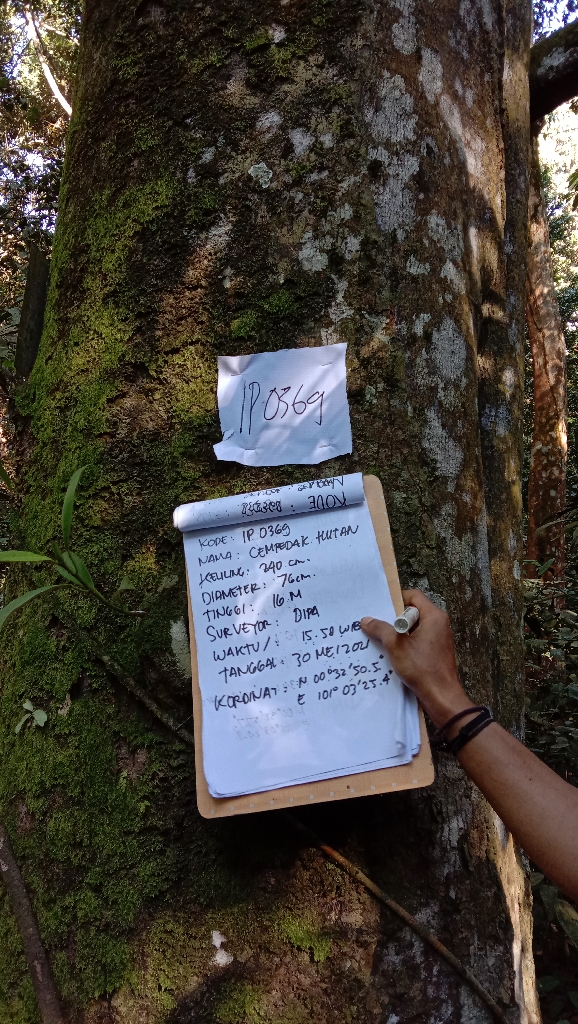 IP 0369
KODE
KODE: IP.0369
NAMA: CEMPEDAK HUTAN
KELILING: 240 cm.
DIAMETER: 76 cm.
TINGGI: 16 M
SURVEYOR: DIPA
WAKTU/: 15.50 WIB
TANGGAL: 30 MEI 202
KORDINAT: N 00°32'50.5"
E 101°03'25.4"